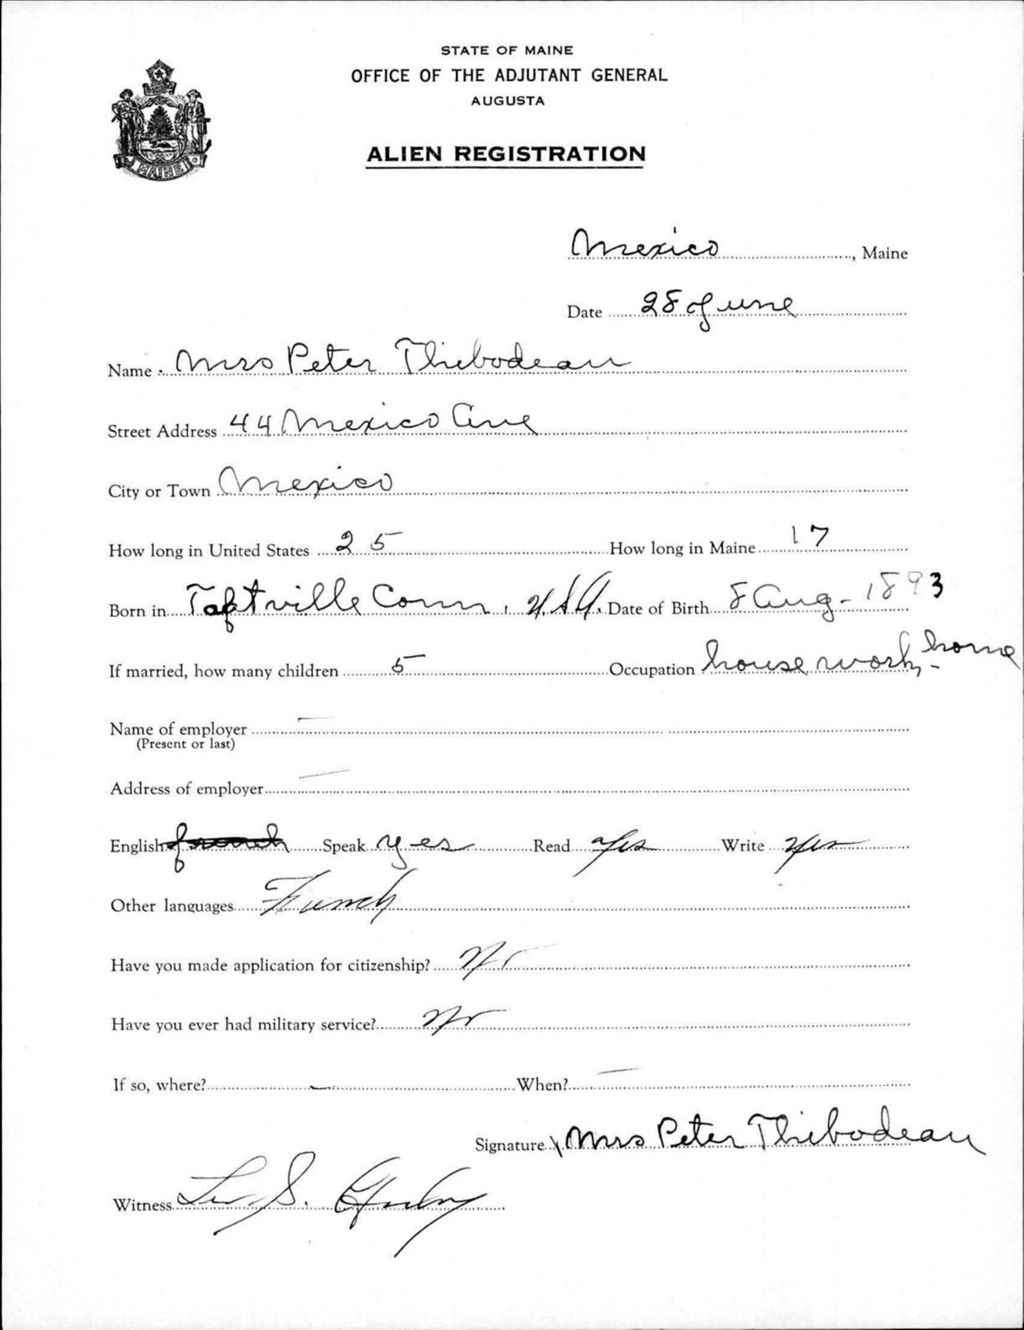 STATE OF MAINE
OFFICE OF THE ADJUTANT GENERAL
AUGUSTA
ALIEN REGISTRATION
MAINE
Mexico, Maine
Date 28 June
Name Mrs Peter Thibodeau
Street Address 44 Mexico Ave
City or Town Mexico
How long in United States 25 How long in Maine 17
Born in Taftville Conn. U.S.A. Date of Birth 8 Aug - 1893
If married, how many children 5 Occupation house work, home
Name of employer —
(Present or last)
Address of employer —
English french Speak yes Read Yes Write Yes
Other languages French
Have you made application for citizenship? No
Have you ever had military service? No
If so, where? — When? —
Signature Mrs Peter Thibodeau
Witness S.